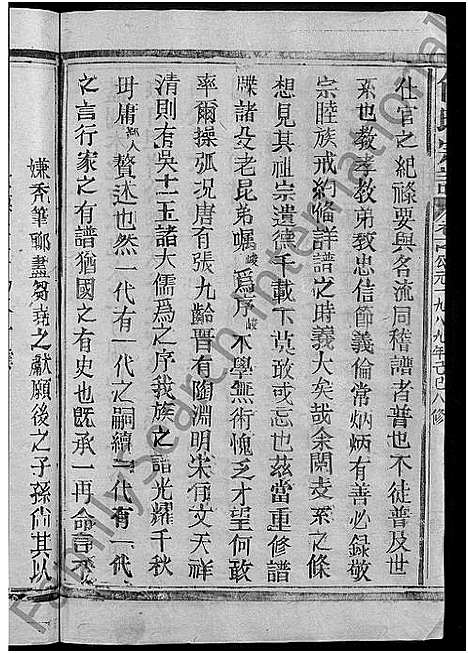 仕官之紀祿要與各流同稽譜者普也不徒普及世
系也教孝教弟教忠信節義倫常炳炳有善必録敬
宗睦族戒約脩詳譜之時義大矣哉余閱支系之條
想見其祖宗遺德千載下莫敢或忘也兹當重修譜
牒諸殳老昆弟囑峻爲序峻不學無術愧乏才望何敢
率爾操弧况唐有張九齡晋有陶淵明宋有文天祥
清則有吳士玉諸大儒爲之序我族之譜光耀千秋
毋庸人贅述也然一代有一代之嗣續一代有一代
之言行家之有譜猶國之有史也既承一再命言不
嫌秃筆聊盡芻蕘之献願後之子孫尚其以
氏宗譜 公元一九八九年己巳八修
Family Search International